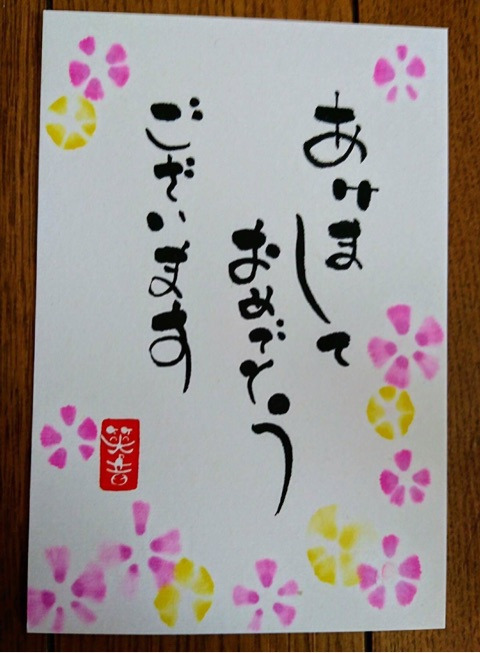 あけまして
おめでとう
ございます
笑吉